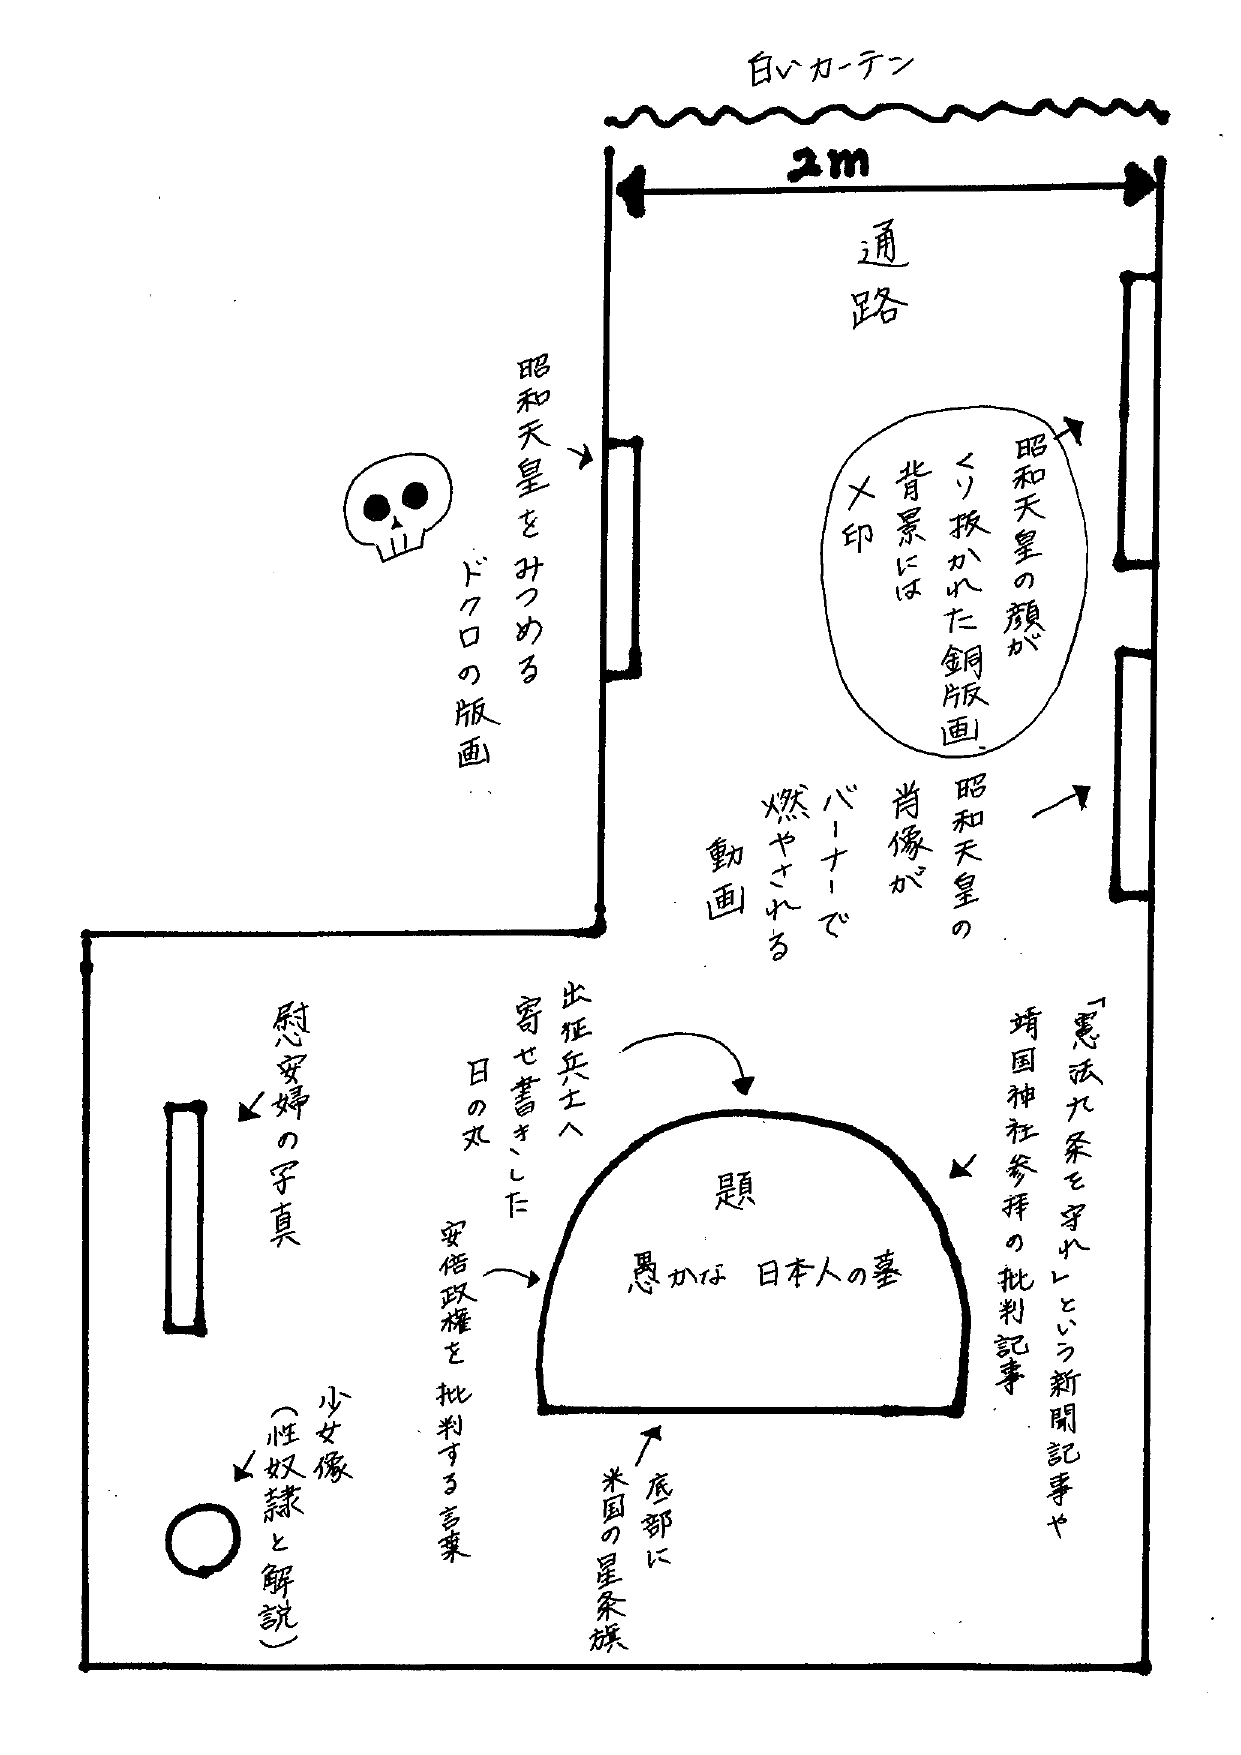 白いカーテン
2m
通路
昭和天皇の顔が
くり抜かれた銅版画、
背景には
×印
昭和天皇をみつめる
ドクロの版画
昭和天皇の
肖像が
バーナーで
燃やされる
動画
「憲法九条を守れ」という新聞記事や
靖国神社参拝の批判記事
出征兵士へ
寄せ書きした
日の丸
題
愚かな 日本人の墓
安倍政権を批判する言葉
底部に
米国の星条旗
慰安婦の写真
少女像
(性奴隷と解説)